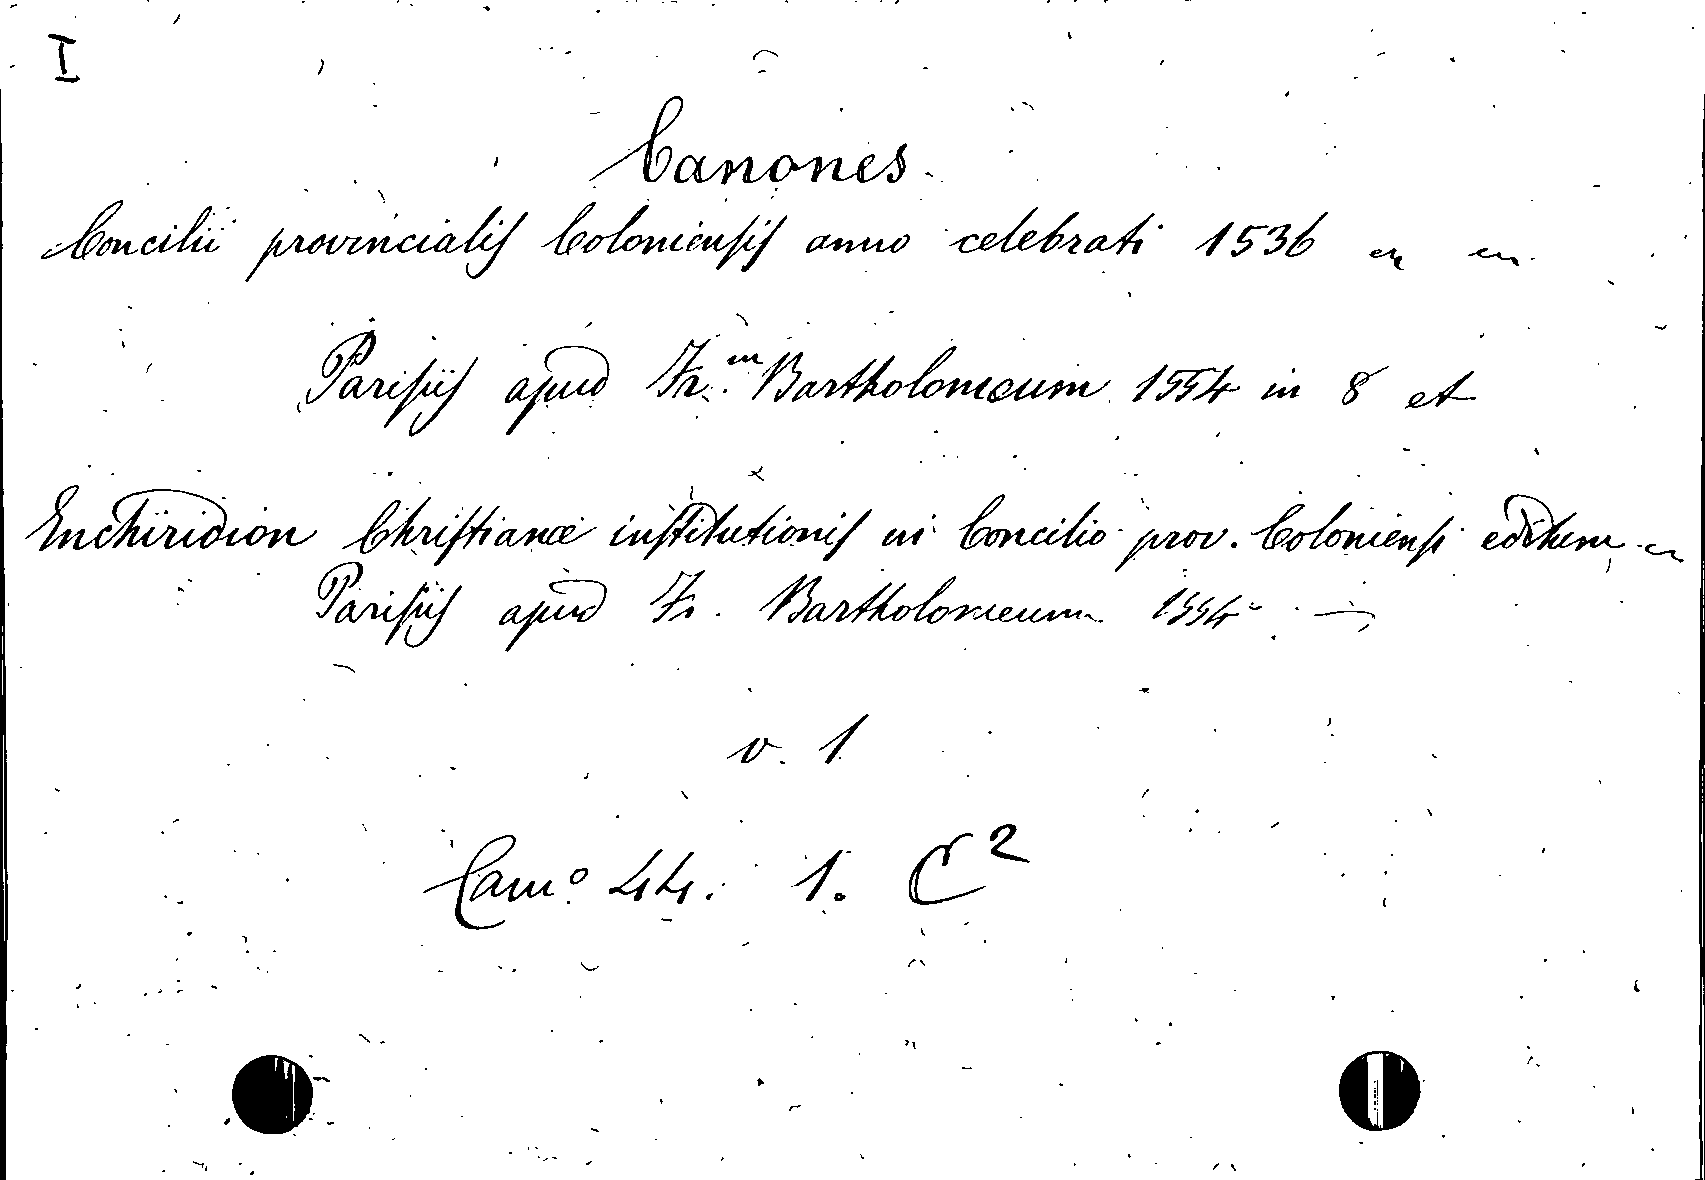 I
Canones
Concilii provincialis Coloniensis anno celebrati 1536
Parisiis apud Fr.m Bartholomeum 1554 in 8 et
Enchiridion Christianæ institutionis in Concilio prov. Coloniensi editum
Parisiis apud Fr. Bartholomeum 1554
v. 1
Cam° 44. 1. C²